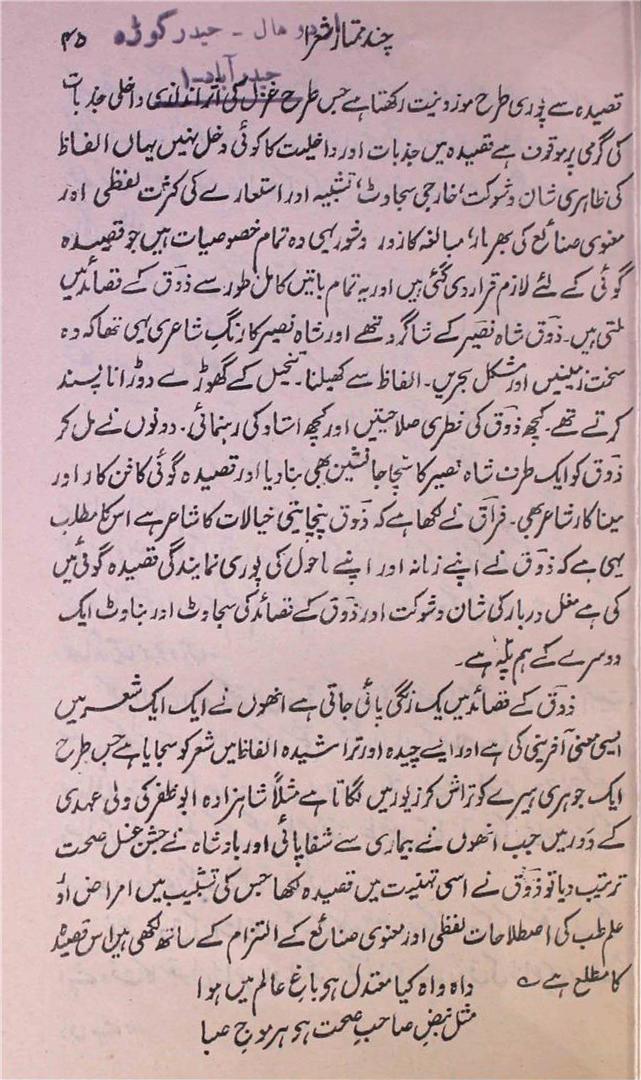 چند ممتاز شعرا ۴۵
اردو ہال - حیدر گوڑہ
حیدرآباد - ۱
قصیدہ سے پوری طرح موزونیت رکھتا ہے جس طرح غزل کی اثر اندازی داخلی جذبات
کی گرمی پر موقوف ہے قصیدہ میں جذبات اور داخلیت کا کوئی دخل نہیں یہاں الفاظ
کی ظاہری شان و شوکت، خارجی سجاوٹ، تشبیہ اور استعارے کی کثرت لفظی اور
معنوی صنائع کی بھرمار، مبالغہ کا زور و شور یہی وہ تمام خصوصیات ہیں جو قصیدہ
گوئی کے لئے لازم قرار دی گئی ہیں اور یہ تمام باتیں کامل طور سے ذوقؔ کے قصائد میں
ملتی ہیں۔ ذوقؔ شاہ نصیرؔ کے شاگرد تھے اور شاہ نصیر کا رنگ شاعری یہی تھا کہ وہ
سخت زمینیں اور مشکل بحریں۔ الفاظ سے کھیلنا۔ تخیل کے گھوڑے دوڑانا پسند
کرتے تھے۔ کچھ ذوقؔ کی فطری صلاحیتیں اور کچھ استاد کی رہنمائی۔ دونوں نے مل کر
ذوقؔ کو ایک طرف شاہ نصیر کا سچا جانشین بھی بنا دیا اور قصیدہ گوئی کا فن کار اور
مینا کار شاعر بھی۔ فراقؔ نے لکھا ہے کہ ذوقؔ پنچایتی خیالات کا شاعر ہے اس کا مطلب
یہی ہے کہ ذوقؔ نے اپنے زمانہ اور اپنے ماحول کی پوری نمایندگی قصیدہ گوئی میں
کی ہے مغل دربار کی شان و شوکت اور ذوقؔ کے قصائد کی سجاوٹ اور بناوٹ ایک
دوسرے کے ہم پلّہ ہے۔
ذوقؔ کے قصائد میں یک رنگی پائی جاتی ہے انھوں نے ایک ایک شعر میں
ایسی معنی آفرینی کی ہے اور ایسے چیدہ اور تراشیدہ الفاظ میں شعر کو سجایا ہے جس طرح
ایک جوہری ہیرے کو تراش کر زیور میں لگاتا ہے مثلاً شاہزادہ ابو ظفر کی ولی عہدی
کے دَور میں جب انھوں نے بیماری سے شفا پائی اور بادشاہ نے جشن غسل صحت
ترتیب دیا تو ذوقؔ نے اسی تہنیت میں قصیدہ لکھا جس کی تشبیب میں امراض اور
علم طب کی اصطلاحات لفظی اور معنوی صنائع کے التزام کے ساتھ لکھی ہیں اس قصیدہ
کا مطلع ہے ؎ واہ واہ کیا معتدل ہو باغِ عالم میں ہوا
مثل نبضِ صاحبِ صحت ہو ہر موج صبا